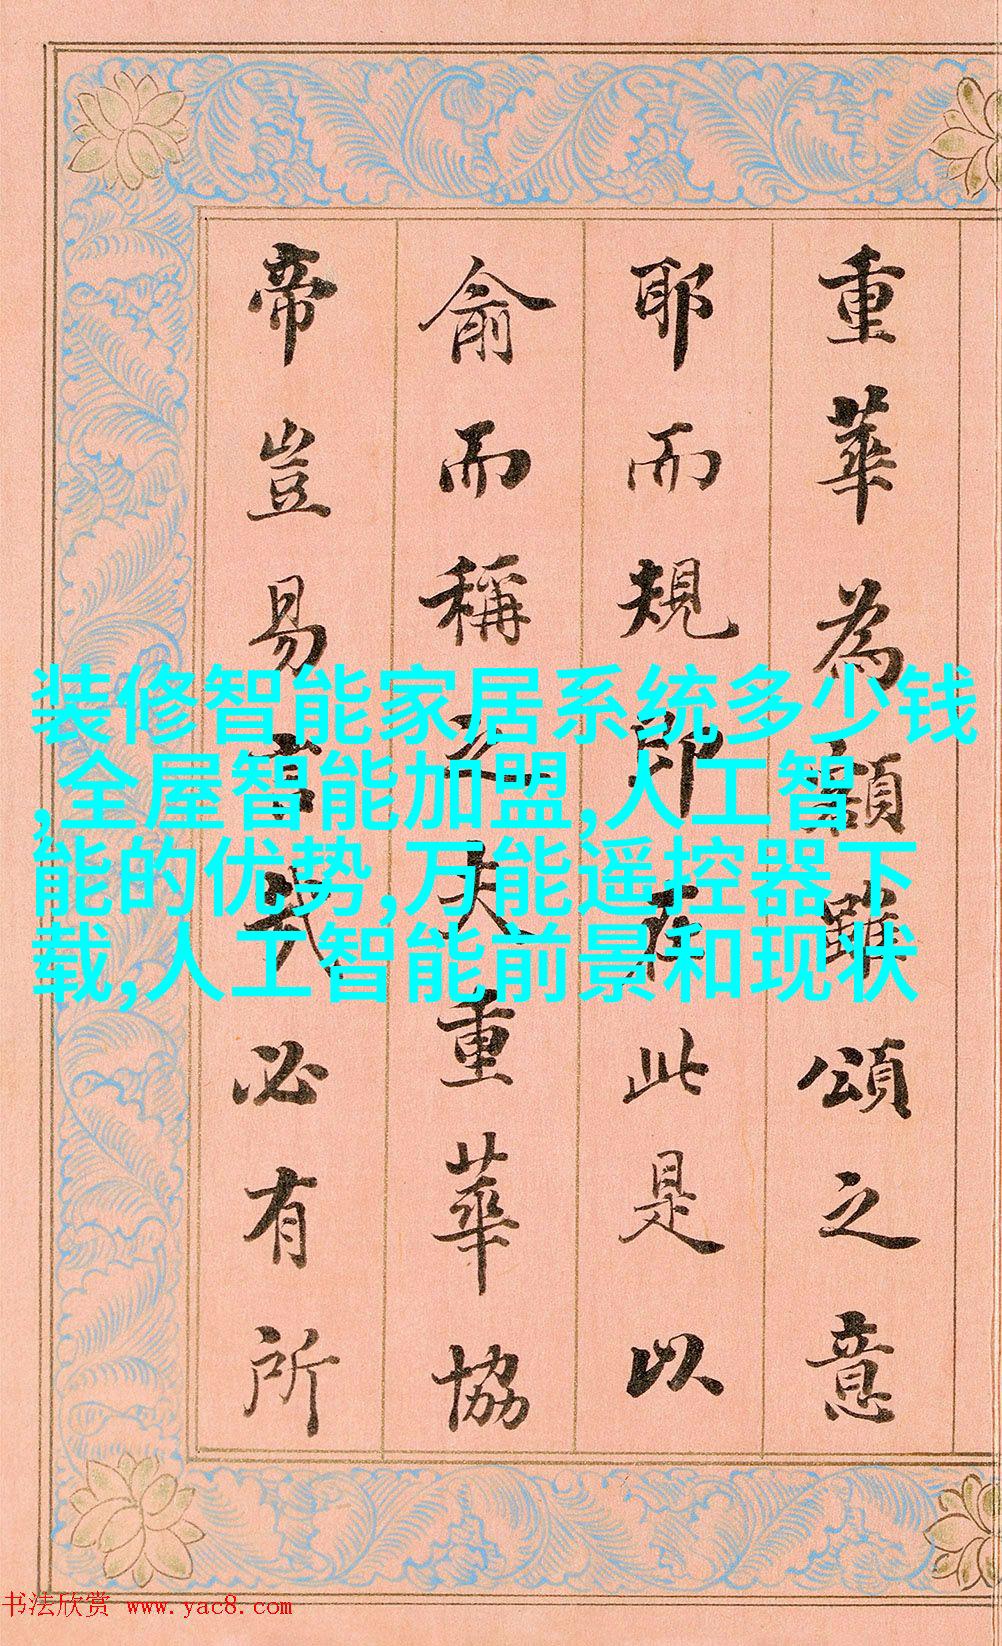 重華為額雖頌之意
耶而規即在此是以
俞而稱之夫重華協
帝豈易言哉必有所
装修智能家居系统多少钱
,全屋智能加盟,人工智
能的优势,万能遥控器下
载,人工智能前景和现状
书法欣赏 www.yac8.com